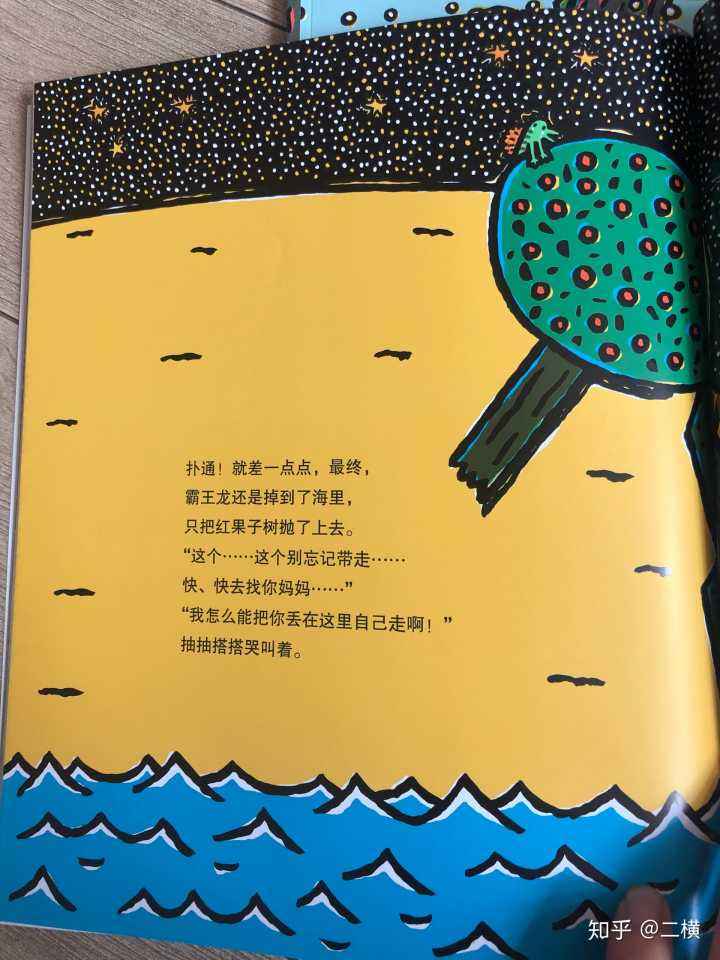 扑通！就差一点点，最终，
霸王龙还是掉到了海里，
只把红果子树抛了上去。
“这个……这个别忘记带走……
快、快去找你妈妈……”
“我怎么能把你丢在这里自己走啊！”
抽抽搭搭哭叫着。
知乎 @二横